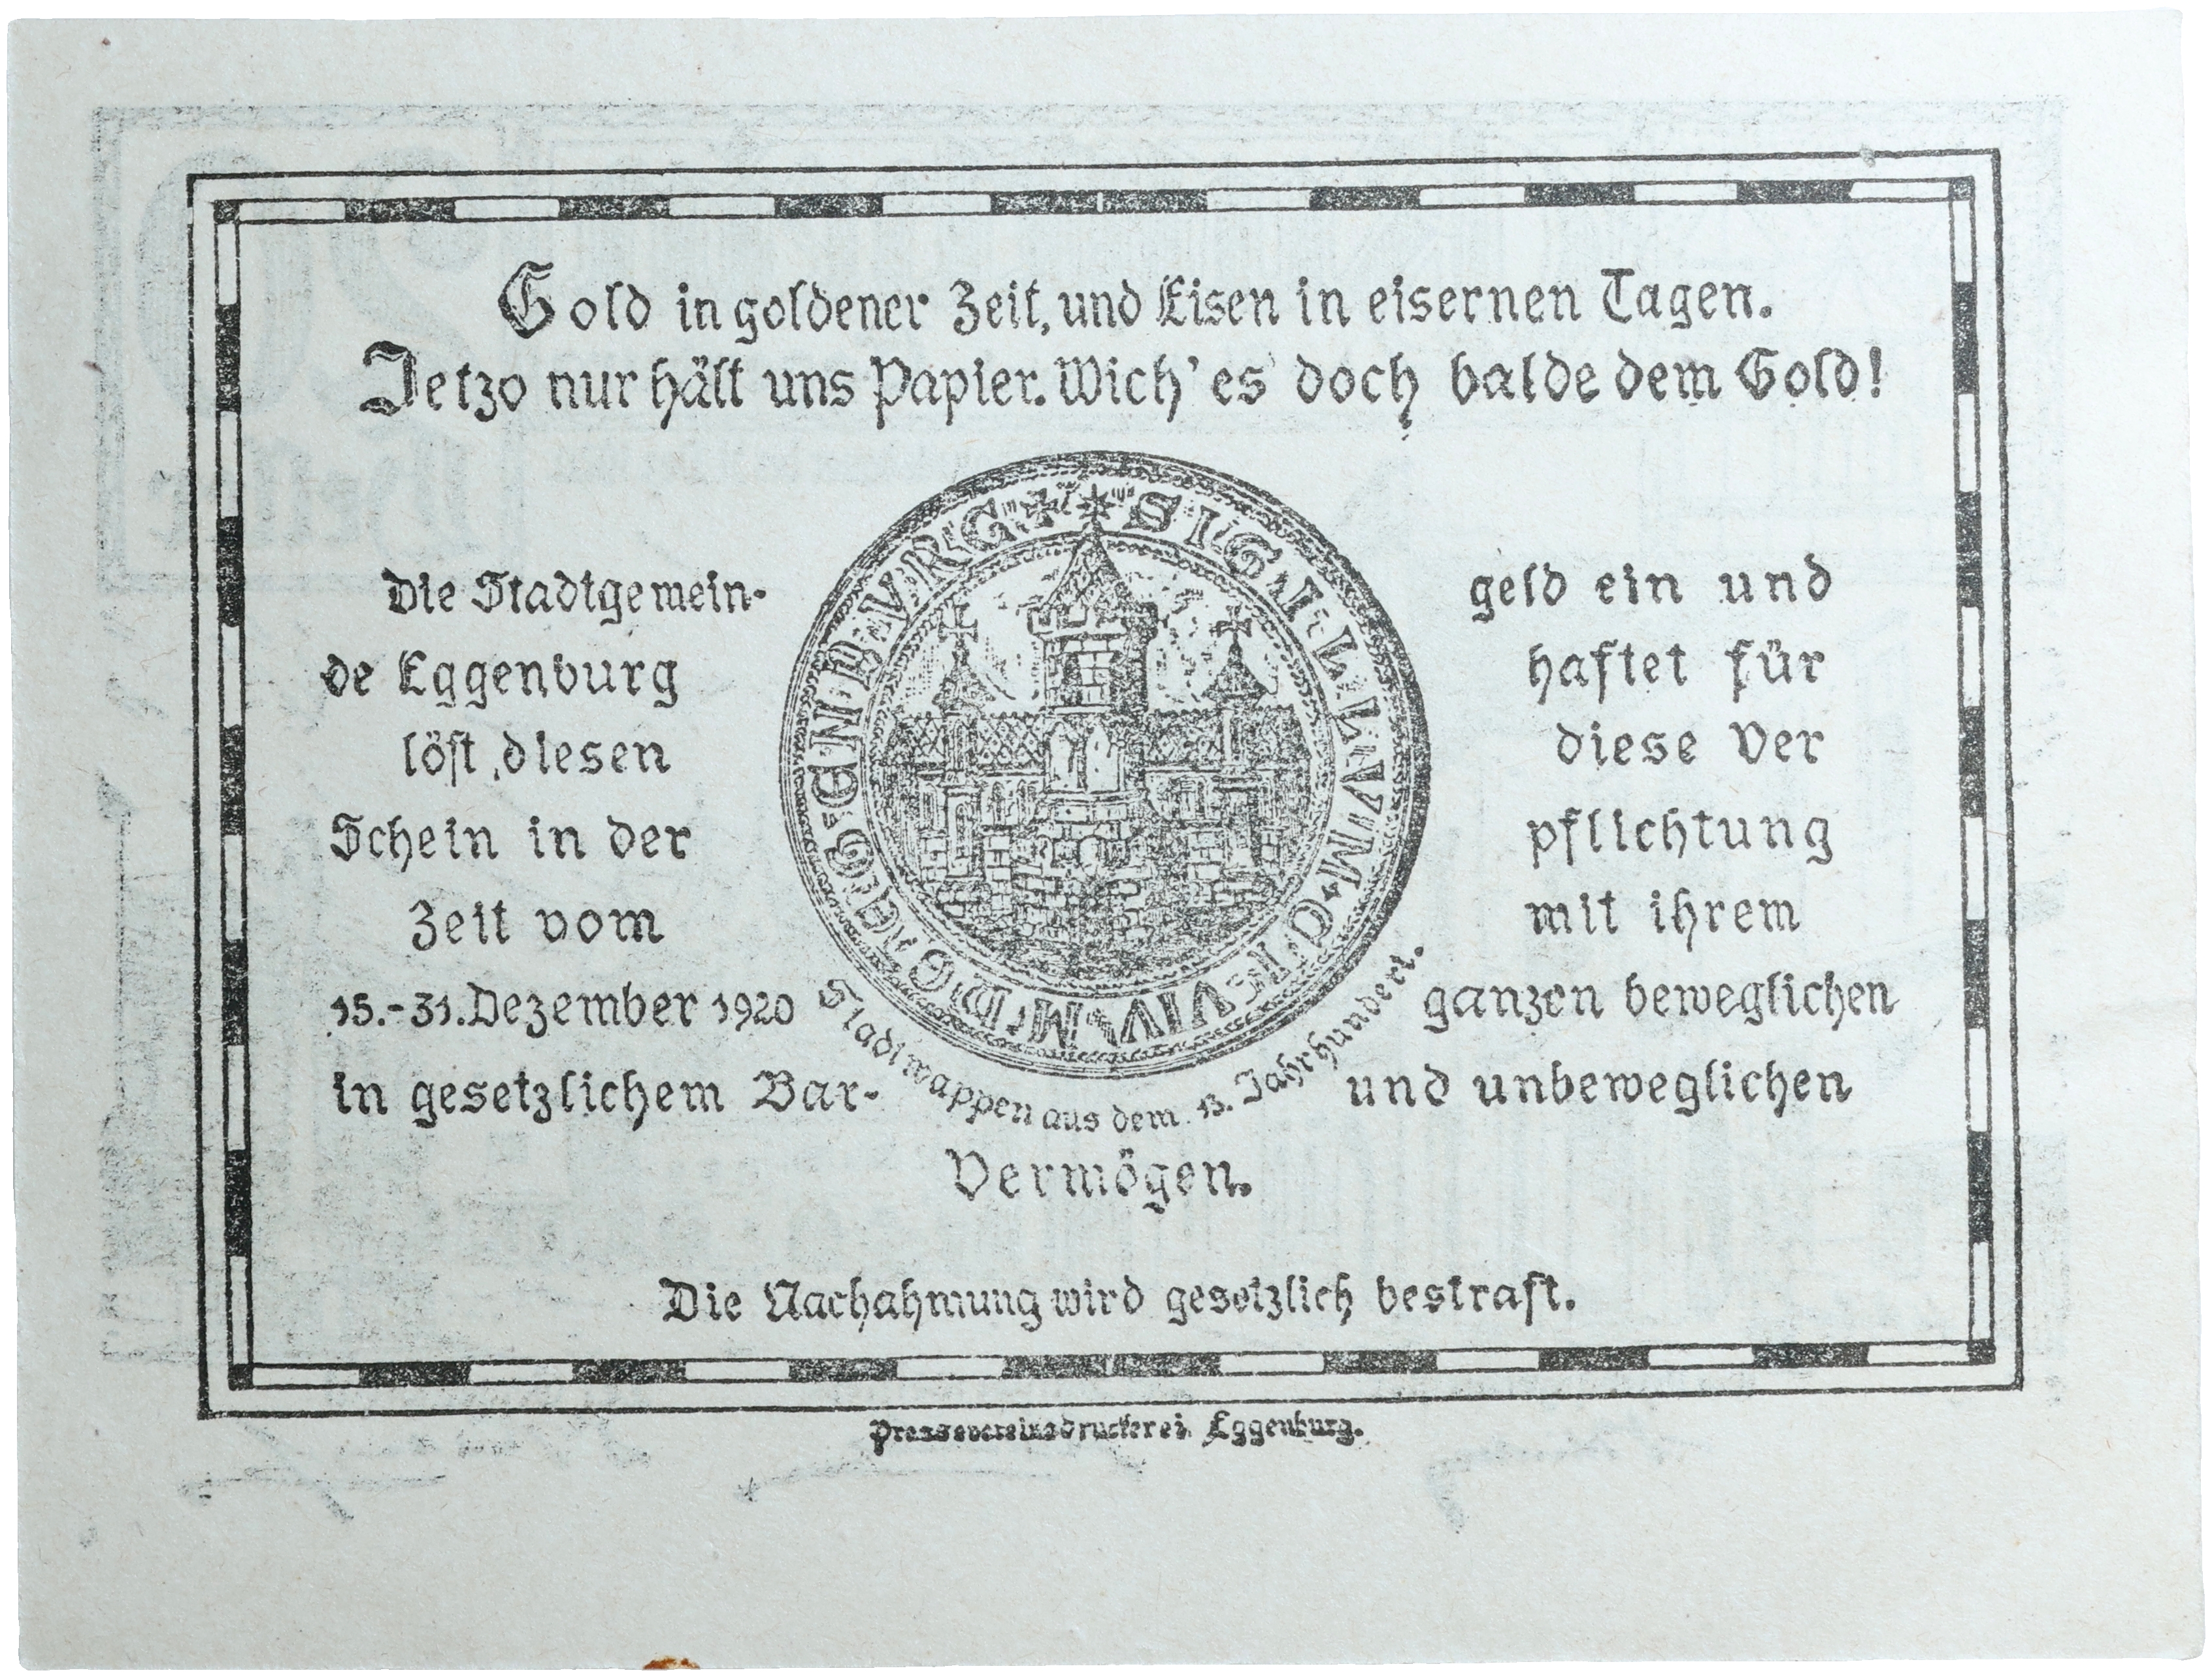 Gold in goldener Zeit, und Eisen in eisernen Tagen.
Jetzo nur hält uns Papier. Wich' es doch balde dem Gold!
Die Stadtgemein-
de Eggenburg
löst diesen
Schein in der
Zeit vom
15.-31. Dezember 1920
in gesetzlichem Bar-
geld ein und
haftet für
diese Ver
pflichtung
mit ihrem
ganzen beweglichen
und unbeweglichen
Vermögen.
SIGILLVM
Stadtwappen aus dem 13. Jahrhundert.
Die Nachahmung wird gesetzlich bestraft.
Pressvereinsdruckerei Eggenburg.